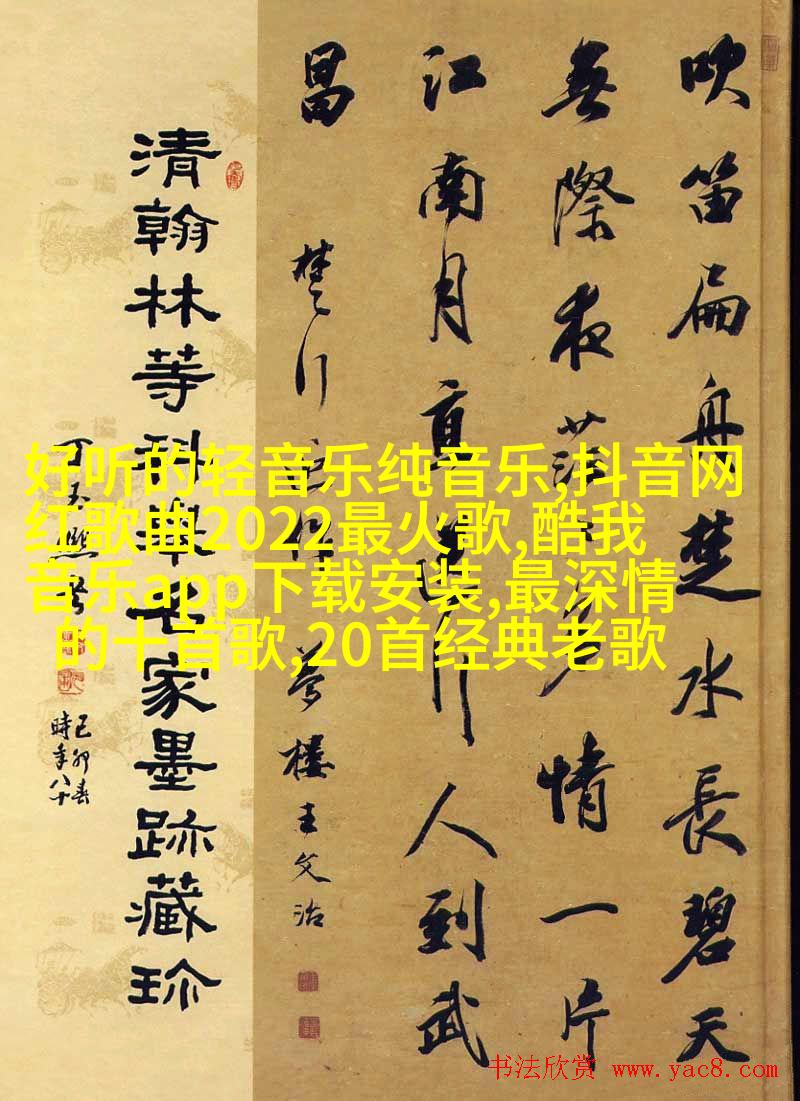 吹笛扁舟楚水長碧天
無際夜茫〻多情一片
江南月直送行人到武
昌
楚行近作 夢樓王文治
清翰林等科舉世家墨跡藏珍
己卯春
時年八十
好听的轻音乐纯音乐,抖音网
红歌曲2022最火歌,酷我
音乐app下载安装,最深情
的十首歌,20首经典老歌
书法欣赏 www.yac8.com